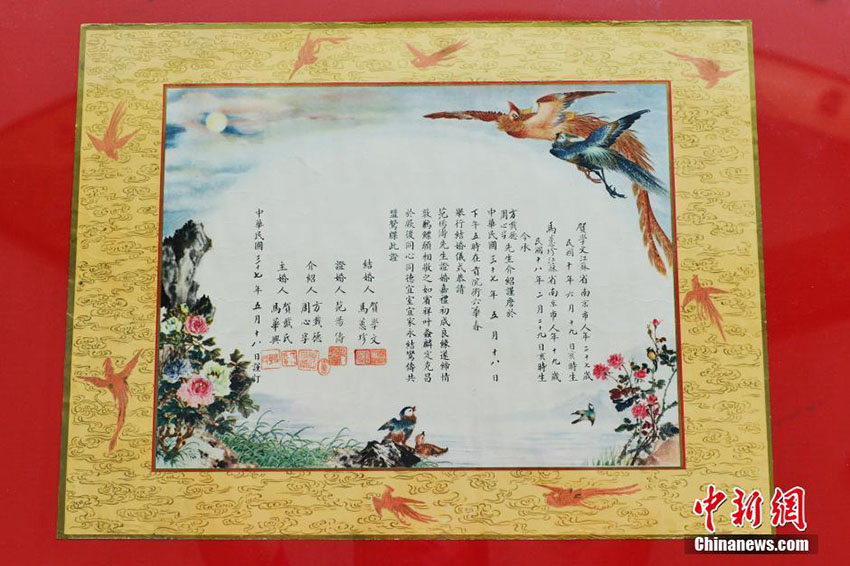 賀學文江蘇省南京市人年二十七歲
民國十年六月十九日亥時生
馬蕙珍江蘇省南京市人年十九歲
民國十八年二月二十九日亥時生
今承
方戴德
周心孚先生介紹謹詹於
中華民國三十七年五月十八日
下午五時在貢院街六華春
舉行結婚儀式恭請
范揚濤先生證婚嘉禮初成良緣遂締情
敦鶼鰈願相敬之如賓祥叶螽麟定克昌
於厥後同心同德宜室宜家永結鸞儔共
盟鴛牒此證
結婚人 賀學文
馬蕙珍
證婚人 范揚濤
介紹人 方戴德
周心孚
主婚人 賀戴氏
馬華興
中華民國三十七年五月十八日謹訂
中新网
Chinanews.com